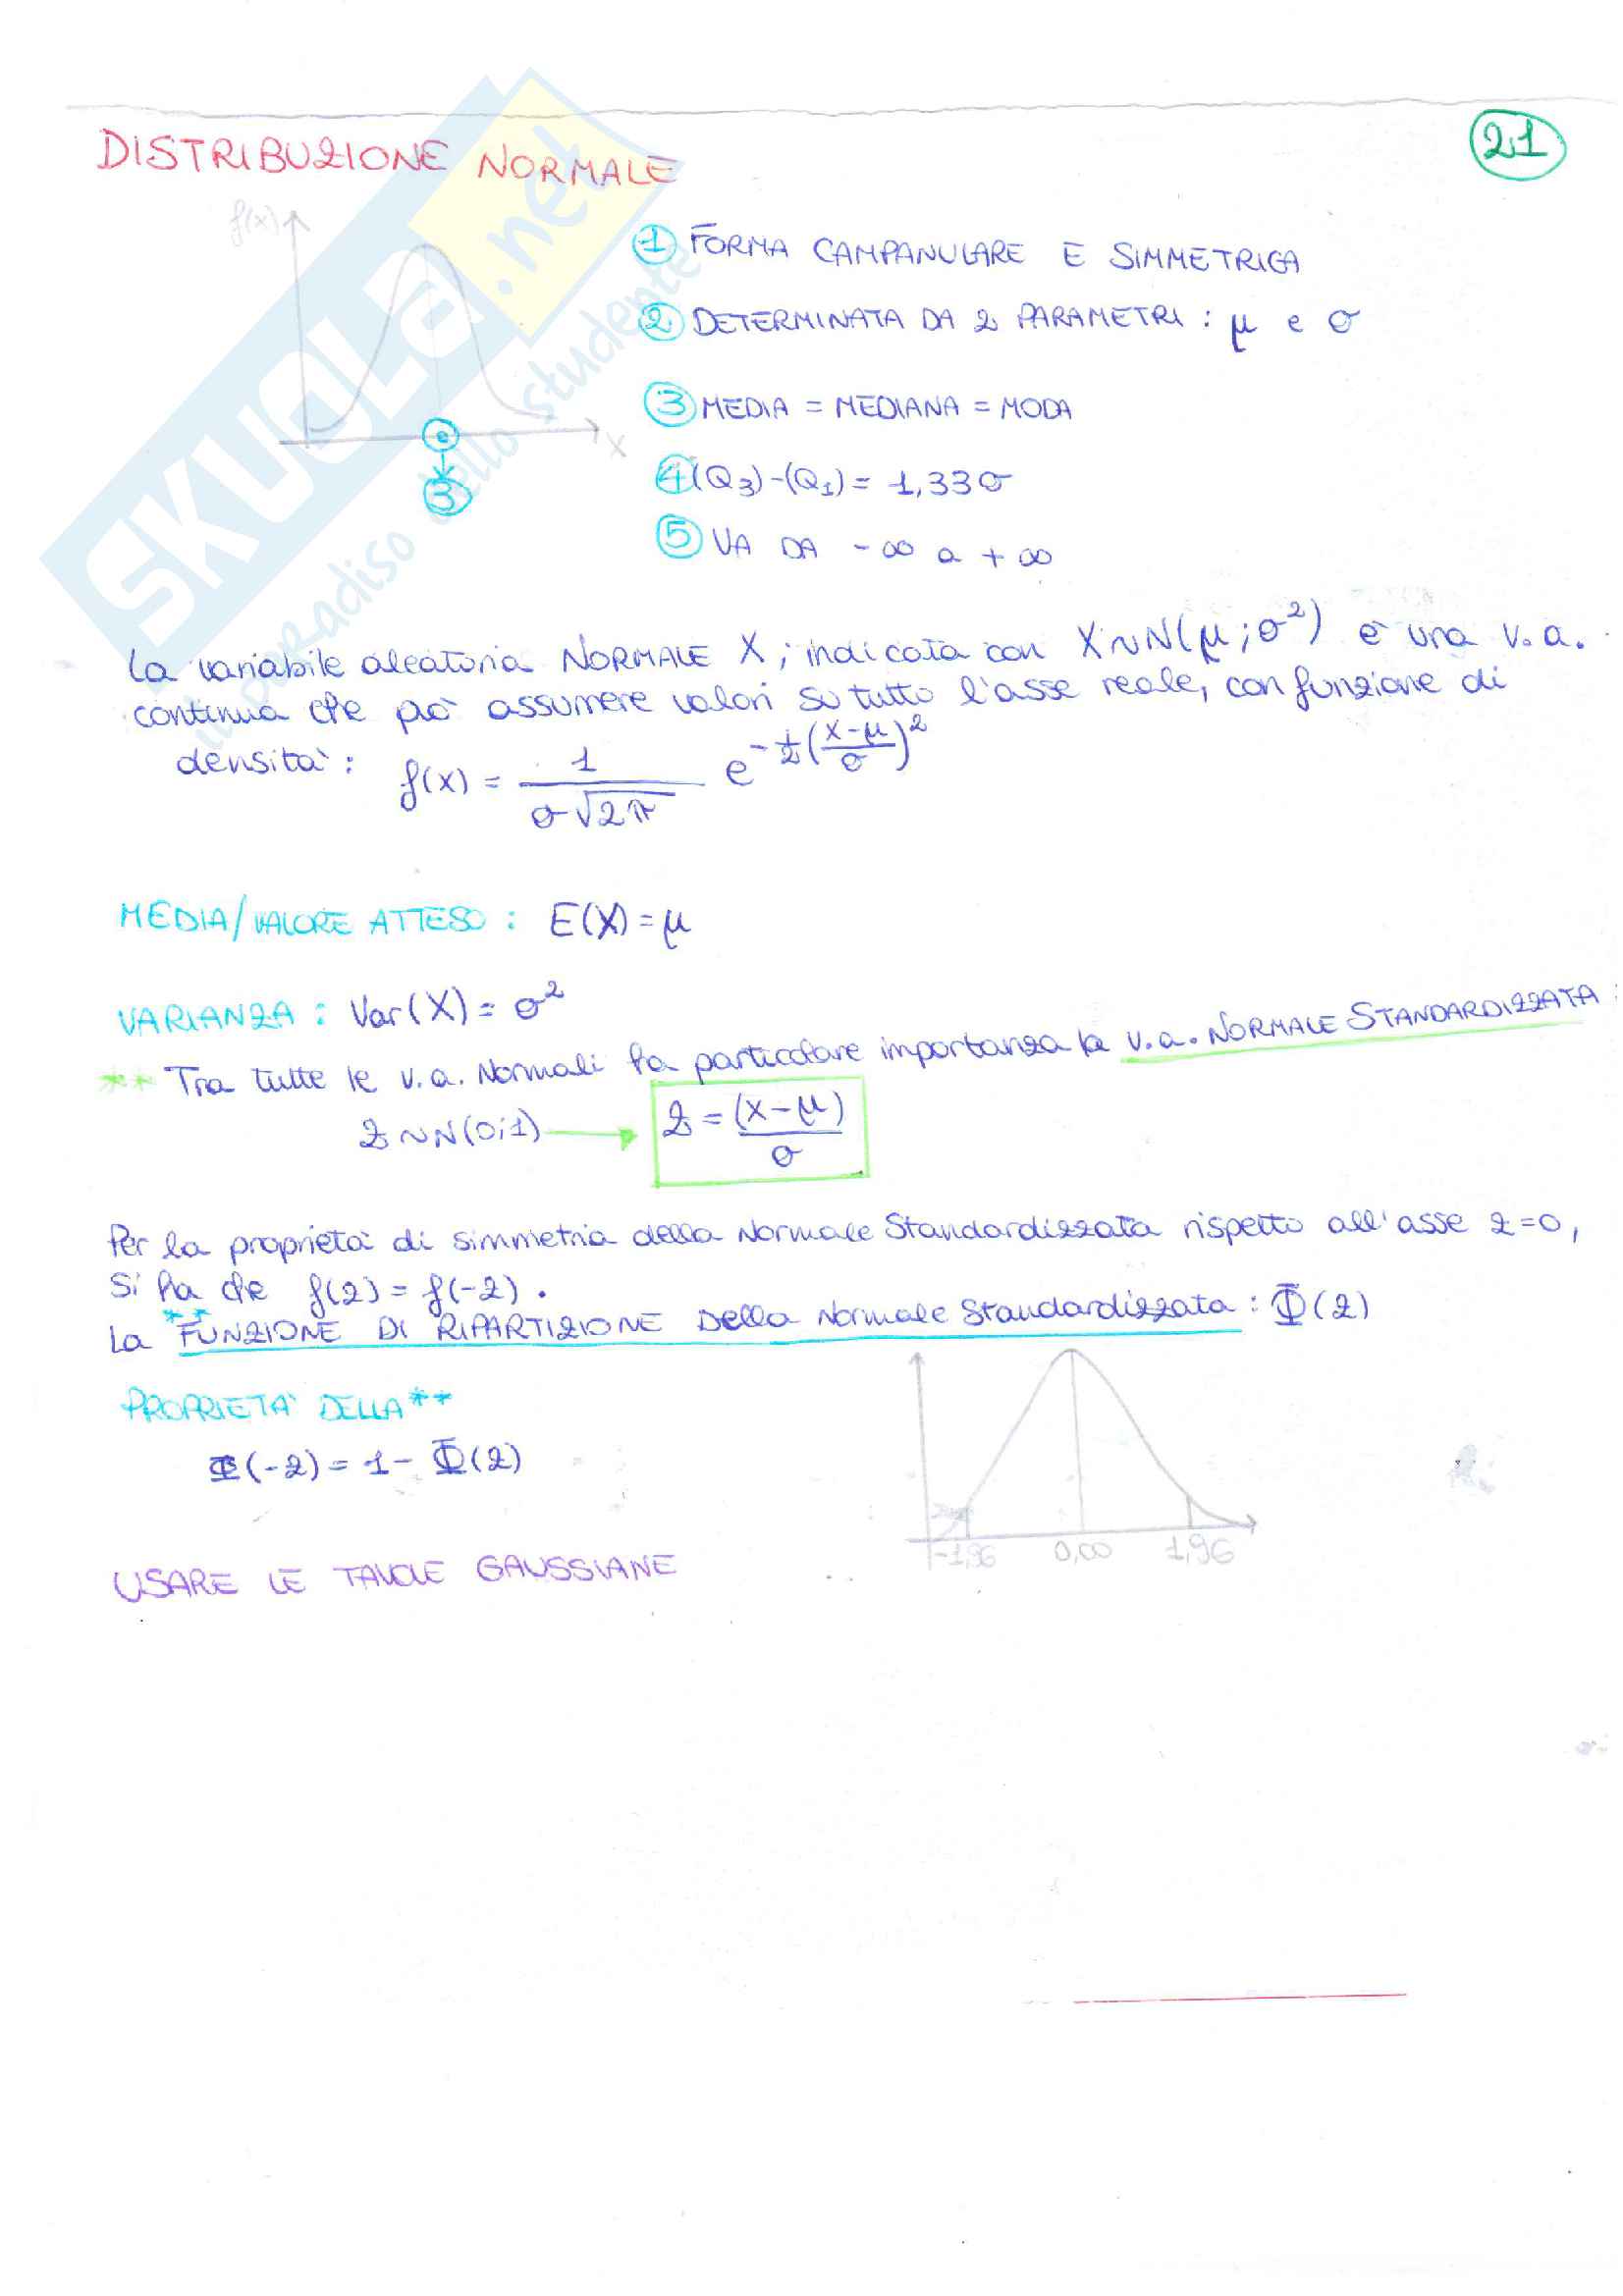 21
DISTRIBUZIONE NORMALE
f(x)
x
3
① FORMA CAMPANULARE E SIMMETRICA
② DETERMINATA DA 2 PARAMETRI : μ e σ
③ MEDIA = MEDIANA = MODA
④ (Q₃)-(Q₁) = 1,33σ
⑤ VA DA -∞ a +∞
SKUOLA.net
il paradiso dello studente
La variabile aleatoria NORMALE X, indicata con X~N(μ;σ²) è una v.a.
continua che può assumere valori su tutto l'asse reale, con funzione di
densità: f(x) = 1/(σ√2π) e^(-½((x-μ)/σ)²)
MEDIA/VALORE ATTESO : E(X) = μ
VARIANZA : Var(X) = σ²
** Tra tutte le v.a. Normali ha particolare importanza la v.a. NORMALE STANDARDIZZATA :
Z~N(0;1) → Z = (x-μ)/σ
Per la proprietà di simmetria della Normale Standardizzata rispetto all'asse z=0,
si ha che f(z) = f(-z).
**
La FUNZIONE DI RIPARTIZIONE Della Normale Standardizzata : Φ(z)
PROPRIETA' DELLA**
Φ(-z) = 1- Φ(z)
-1,96 0,00 1,96
USARE LE TAVOLE GAUSSIANE